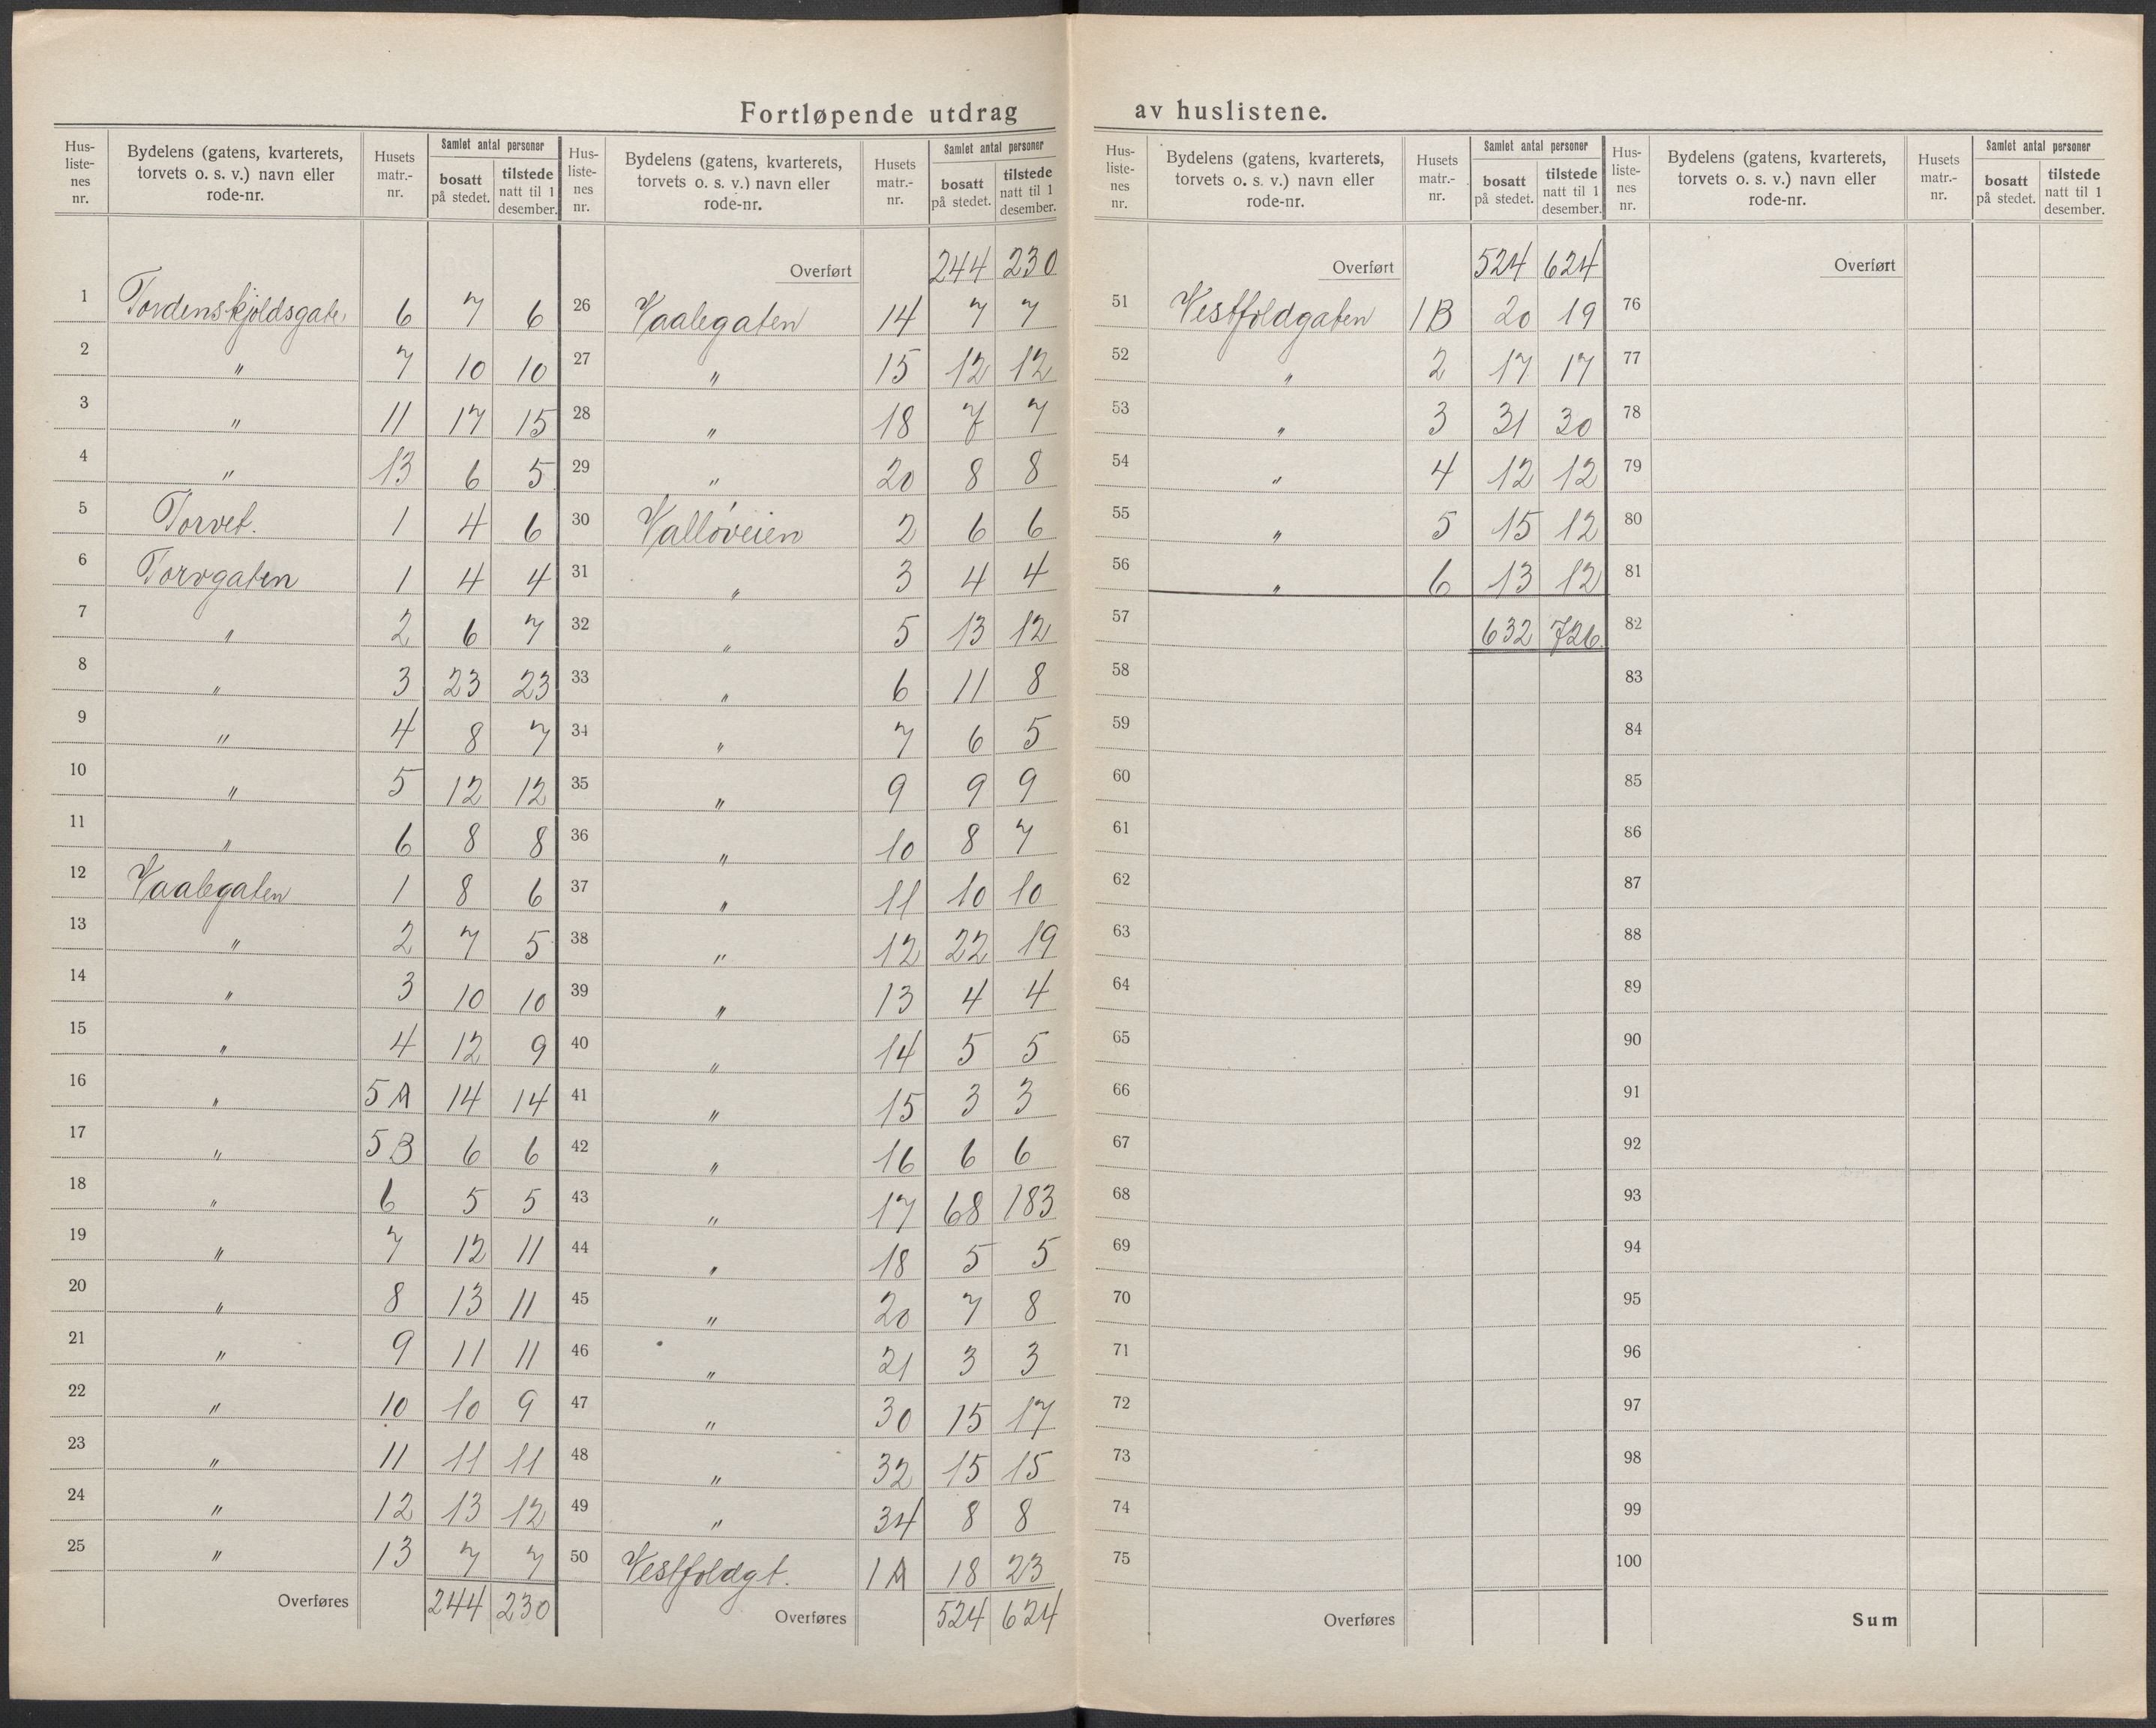 Fortløpende utdrag av huslistene.
Hus-liste-nes nr. | Bydelens (gatens, kvarterets, torvets o. s. v.) navn eller rode-nr. | Husets matr.-nr. | Samlet antal personer | bosatt på stedet. | tilstede natt til 1 desember.
1 Tordenskjoldsgate. 6 7 6
2 " 7 10 10
3 " 11 17 15
4 " 13 6 5
5 Torvet. 1 4 6
6 Torvgaten 1 4 4
7 " 2 6 7
8 " 3 23 23
9 " 4 8 7
10 " 5 12 12
11 " 6 8 8
12 Vaalegaten 1 8 6
13 " 2 7 5
14 " 3 10 10
15 " 4 12 9
16 " 5A 14 14
17 " 5B 6 6
18 " 6 5 5
19 " 7 12 11
20 " 8 13 11
21 " 9 11 11
22 " 10 10 9
23 " 11 11 11
24 " 12 13 12
25 " 13 7 7
Overføres 244 230
Hus-liste-nes nr. | Bydelens (gatens, kvarterets, torvets o. s. v.) navn eller rode-nr. | Husets matr.-nr. | Samlet antal personer | bosatt på stedet. | tilstede natt til 1 desember.
Overført 244 230
26 Vaalegaten 14 7 7
27 " 15 12 12
28 " 18 7 7
29 " 20 8 8
30 Valløveien 2 6 6
31 " 3 4 4
32 " 5 13 12
33 " 6 11 8
34 " 7 6 5
35 " 9 9 9
36 " 10 8 7
37 " 11 10 10
38 " 12 22 19
39 " 13 4 4
40 " 14 5 5
41 " 15 3 3
42 " 16 6 6
43 " 17 68 183
44 " 18 5 5
45 " 20 7 8
46 " 21 3 3
47 " 30 15 17
48 " 32 15 15
49 " 34 8 8
50 Vestfoldgt. 1A 18 23
Overføres 524 624
Hus-liste-nes nr. | Bydelens (gatens, kvarterets, torvets o. s. v.) navn eller rode-nr. | Husets matr.-nr. | Samlet antal personer | bosatt på stedet. | tilstede natt til 1 desember.
Overført 524 624
51 Vestfoldgaten 1B 20 19
52 " 2 17 17
53 " 3 31 30
54 " 4 12 12
55 " 5 15 12
56 " 6 13 12
57 632 726
58
59
60
61
62
63
64
65
66
67
68
69
70
71
72
73
74
75
Overføres
Hus-liste-nes nr. | Bydelens (gatens, kvarterets, torvets o. s. v.) navn eller rode-nr. | Husets matr.-nr. | Samlet antal personer | bosatt på stedet. | tilstede natt til 1 desember.
Overført
76
77
78
79
80
81
82
83
84
85
86
87
88
89
90
91
92
93
94
95
96
97
98
99
100
Sum